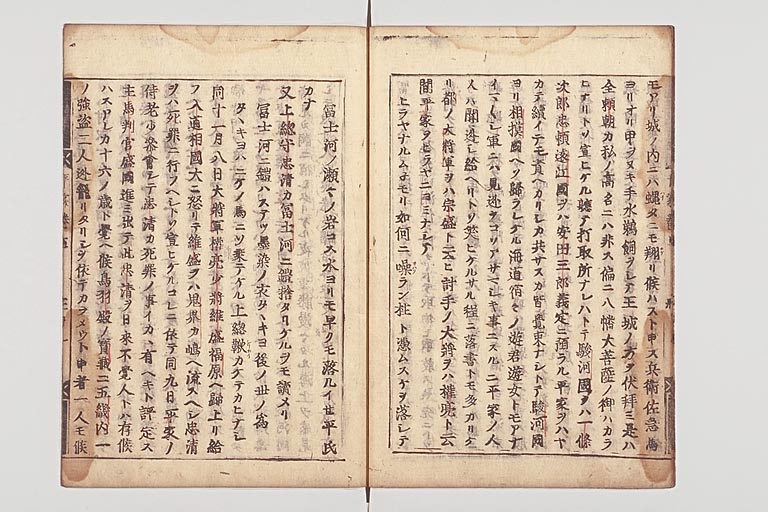 モアリ城ノ内ニハ蠅タニモ翔リ候ハスト申ス兵衛佐急馬
ヨリオリ甲ヲヌキ手水鵜飼ヲシテ王城ノ方ヲ伏拝ミ是ハ
全頼朝カ私ノ高名ニハ非ス偏ニ八幡大菩薩ノ御ハカラ
ヒナリトソ宣ヒケル聴テ打取所ナレハトテ駿河國ヲハ一條
次郎忠頼遠江國ヲハ安田三郎義定ニ預ラル平家ヲハヤ
カテ續イテモ責ヘカリシカ共サスカ皆覺束ナシトテ駿河國
ヨリ相摸國ヘソ歸ラレケル海道宿々ノ遊君遊女トモアナ
イマ〱シ軍ニハ見逃ヲコソアサマシキ事ニスルニ平家ノ人
人ハ聞逃シ給ヘリトソ笑ヒケルサル程ニ落書トモ多カリケ
リ都ノ大将軍ヲハ宗盛ト云ヒ討手ノ大将ヲハ權亮ト云
間平家ヲヒラヤニヨミナシテ
ヒラヤナルムネモリ如何ニ噪ラン柱ト憑ムスケヲ落シテ
冨士河ノ瀬々ノ岩コス水ヨリモ早クモ落ルイせ平氏
カナ
又上総守忠清カ冨士河ニ鎧捨タリケルヲモ讀メリ
冨士河ニ鎧ハステツ墨染ノ衣タヽキヨ後ノ世ノ為
タヽキヨハニケノ馬ニソ乗テケル上総鞦カケテカヒナシ
同十一月八日大将軍權亮少将維盛福原ヘ歸上リ給
フ入道相國大ニ怒リテ維盛ヲハ鬼界カ嶋ヘ流スヘシ忠清
ヲハ死罪ニ行ヲヘシトソ宣ヒケルコレニ依テ同九日平家ノ
侍老少參會シテ忠清カ死罪ノ事イカヽ有ヘキト評定ス
主馬判官盛國進ミ出テ此忠清ヲ日来不覺人トハ存候
ハスアレカ十六ノ歳ト覺ヘ候鳥羽殿ノ寳蔵ニ五畿内一
ノ強盗二人逃籠リタリシヲ依テカラメウト申者一人モ候